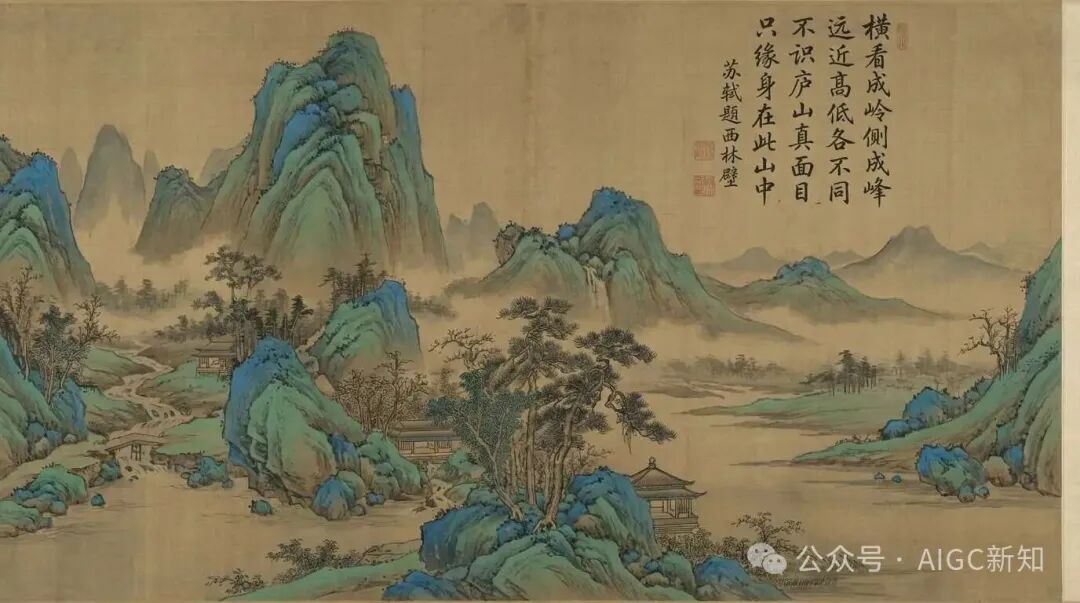 横看成岭侧成峰
远近高低各不同
不识庐山真面目
只缘身在此山中
苏轼题西林壁
公众号·AIGC新知